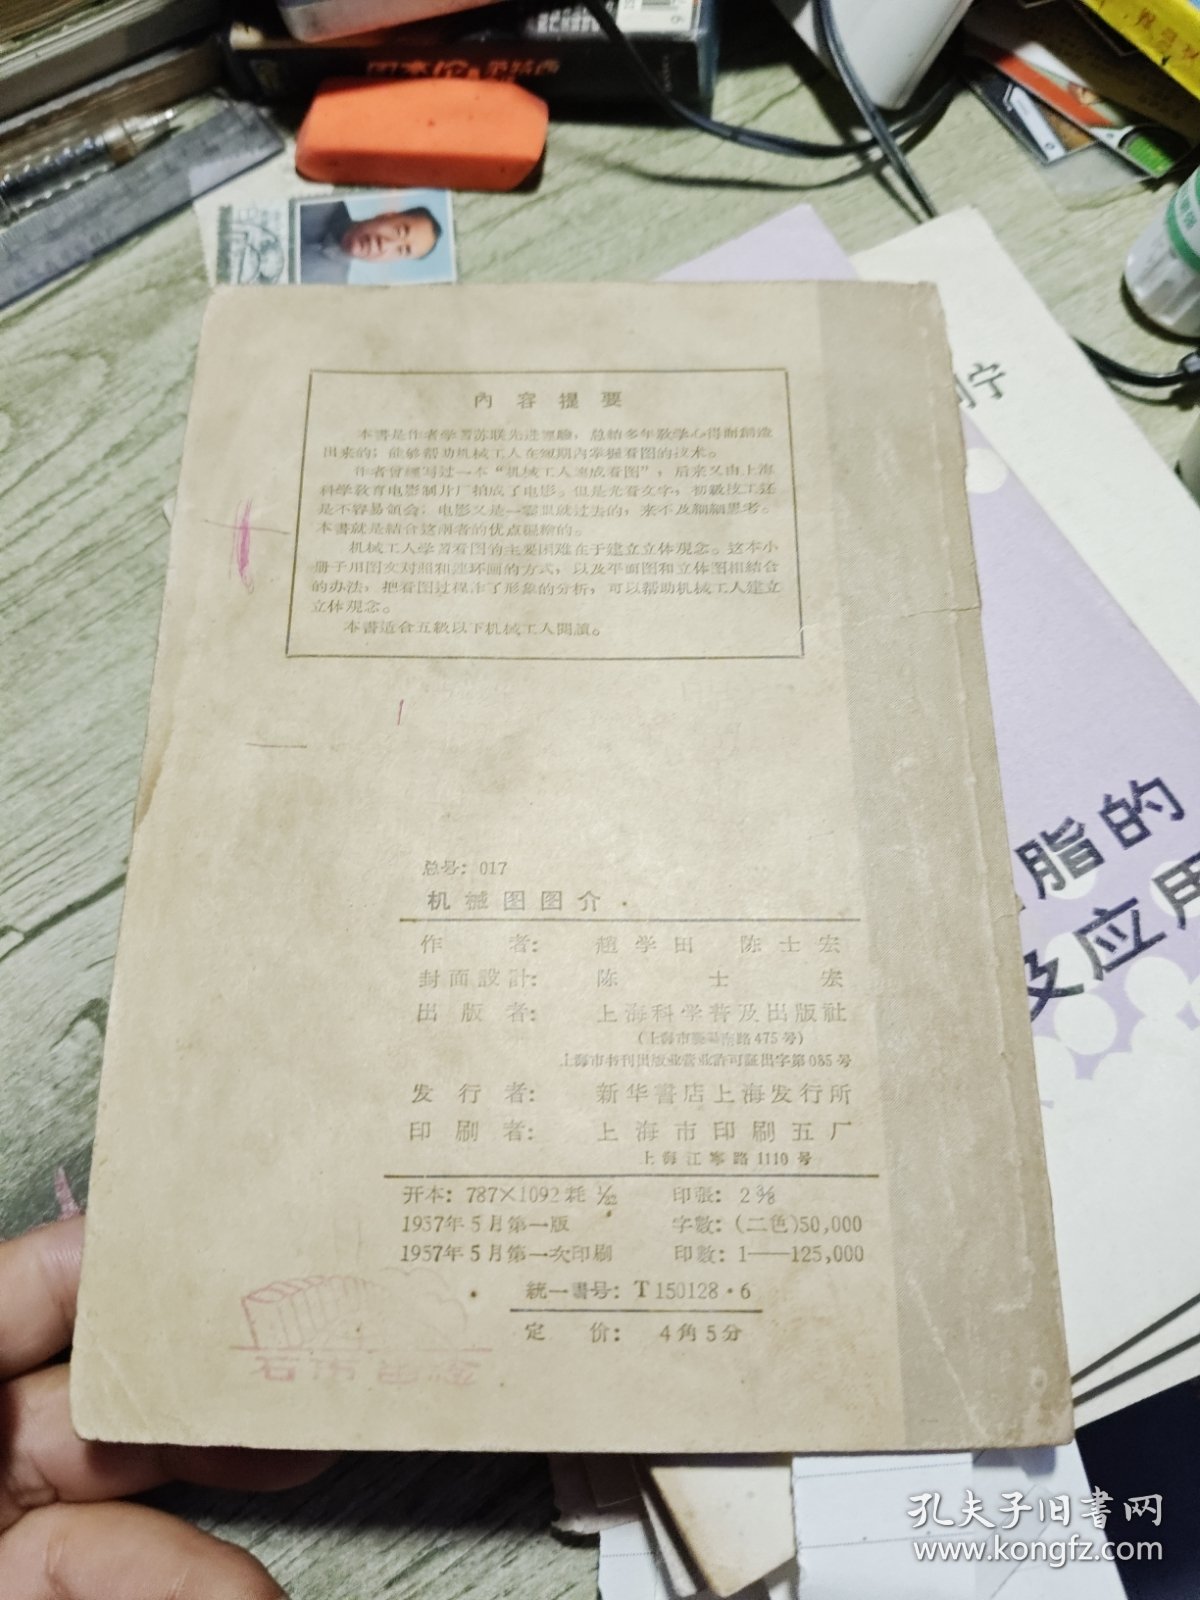 內容提要
本書是作者学習苏联先进經驗，总結多年教学心得而創造
出来的；能够帮助机械工人在短期內掌握看图的技术。
作者曾經写过一本“机械工人速成看图”，后来又由上海
科学教育电影制片厂拍成了电影。但是光看文字，初級技工还
是不容易領会；电影又是一霎眼就过去的，来不及細細思考。
本書就是結合这兩者的优点編繪的。
机械工人学習看图的主要困难在于建立立体观念。这本小
册子用图文对照和連环画的方式，以及平面图和立体图相結合
的办法，把看图过程作了形象的分析，可以帮助机械工人建立
立体观念。
本書适合五級以下机械工人閱讀。
总号：017
机械图图介
作者：趙学田 陈士宏
封面設計：陈士宏
出版者：上海科学普及出版社
（上海市南路475号）
上海市书刊出版业营业許可証出字第085号
发行者：新华書店上海发行所
印刷者：上海市印刷五厂
上海江寧路1110号
开本：787×1092耗 1/32 印張：2 3/8
1957年5月第一版 字数：(二色)50,000
1957年5月第一次印刷 印数：1——125,000
統一書号：T150128·6
定价：4角5分
脂的
及应用
孔夫子旧书网
www.kongfz.com